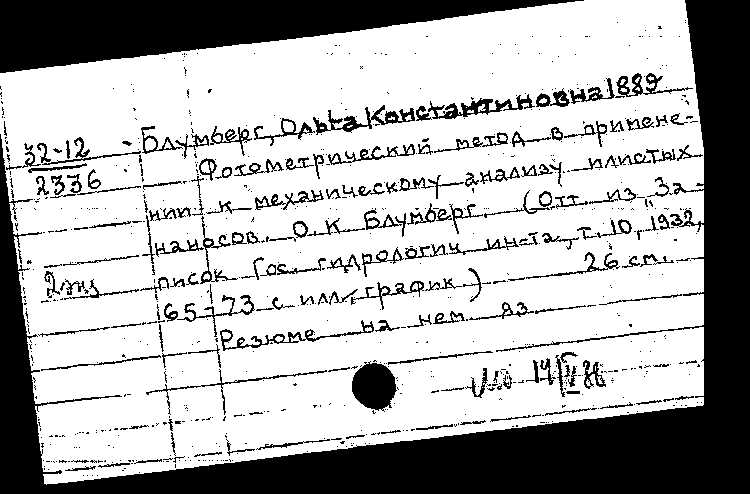 32-12
2336
Блумберг, Ольга Константиновна 1889
Фотометрический метод в примене-
нии к механическому анализу илистых
наносов. О. К Блумберг. (Отт. из „За-
писок Гос. гидрологич. ин-та, т. 10, 1932,
65-73 с илл., график.) 26 см.
Резюме на нем. яз.
2 экз
14/V 88